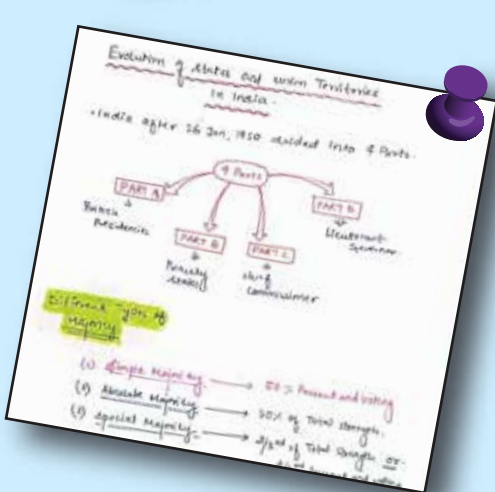 Evolution of states and union Territories
in India.
• India after 26 Jan, 1950 divided into 4 Parts.
4 Parts
PART A
British Presidencies
PART B
Princely states
PART C
chief Commissioner
PART D
Lieutenant Governor
Different Types of
Majority
Simple Majority → 50% Present and voting
Absolute Majority → 50% of Total strength.
Special Majority → 2/3rd of Total Strength or
present and voting